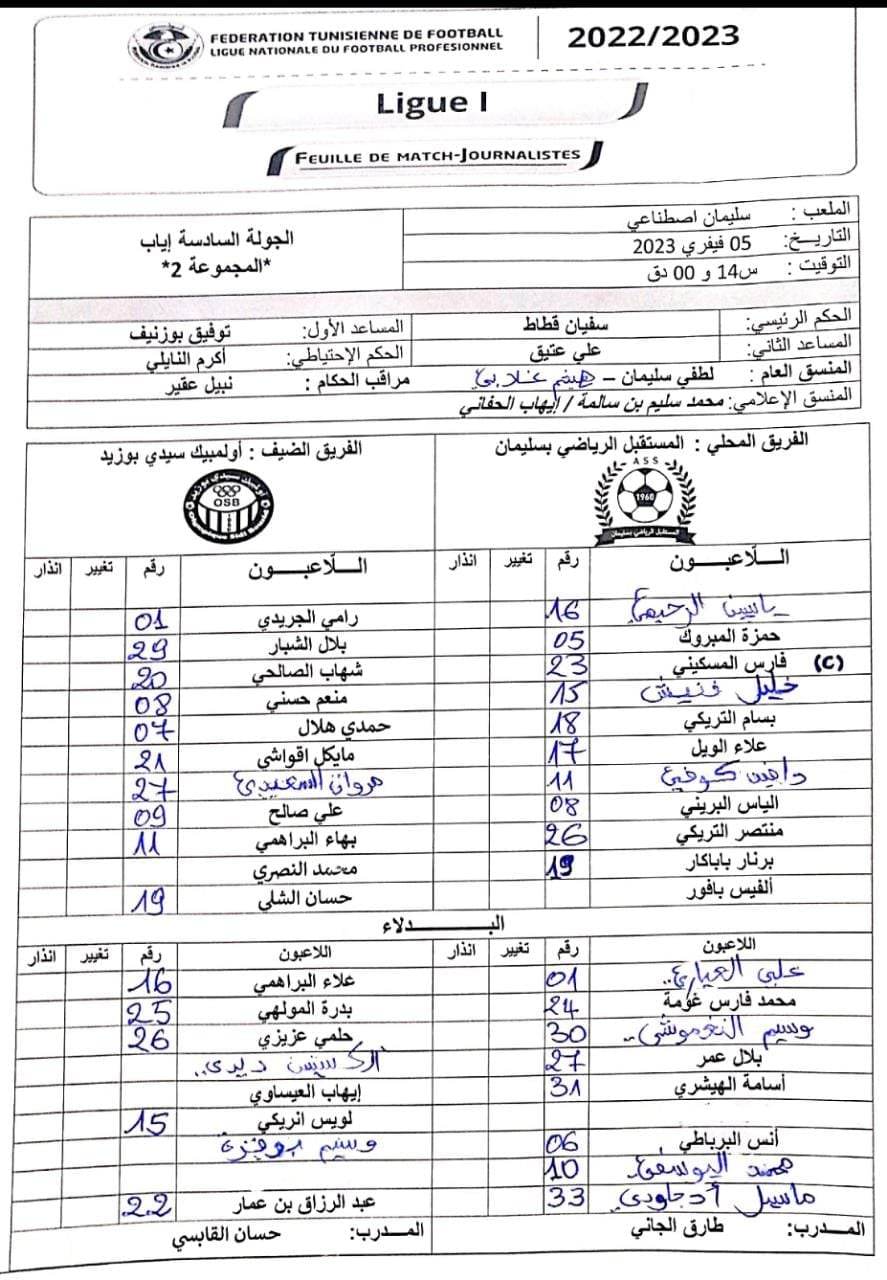 FEDERATION TUNISIENNE DE FOOTBALL
LIGUE NATIONALE DU FOOTBALL PROFESIONNEL
2022/2023
Ligue I
FEUILLE DE MATCH-JOURNALISTES
الملعب : سليمان اصطناعي
التاريـــخ: 05 فيفري 2023
التوقيت : س14 و 00 دق
الجولة السادسة إياب
*المجموعة 2*
الحكم الرئيسي: سفيان قطاط المساعد الأول: توفيق بوزنيف
المساعد الثاني: علي عتيق الحكم الإحتياطي: أكرم النايلي
المنسق العام : لطفي سليمان – هيثم مراقب الحكام : نبيل عقير
المنسق الإعلامي: محمد سليم بن سالمة / إيهاب الحفاني
الفريق المحلي : المستقبل الرياضي بسليمان
A S S
1960
المستقبل الرياضي بسليمان
الفريق الضيف : أولمبيك سيدي بوزيد
أولمبيك سيدي بوزيد
OSB
اللاعبـــون رقم تغيير انذار اللاعبـــون رقم تغيير انذار
ياسين الرحيمي 16 رامي الجريدي 01
حمزة المبروك 05 بلال الشبار 29
(C) فارس المسكيني 23 شهاب الصالحي 20
خليل فنيش 15 منعم حسني 08
بسام التريكي 18 حمدي هلال 07
علاء الويل 17 مايكل اقواشي 21
دافيد كوفي 11 مروان السعيدي 27
الياس البريني 08 علي صالح 09
منتصر التريكي 26 بهاء البراهمي 11
برنار باباكار 19 محمد النصري
ألفيس بافور حسان الشلي 19
البـــــدلاء
اللاعبون رقم تغيير انذار اللاعبون رقم تغيير انذار
علي العياري.. 01 علاء البراهمي 16
محمد فارس غومة 24 بدرة المولهي 25
وسيم النغموشي.. 30 حلمي عزيزي 26
بلال عمر 27 ديدي..
أسامة الهيشري 31 إيهاب العيساوي
لويس انريكي 15
أنس البرباطي 06 وسيم بوقزة
محمد اليوسفي 10
ماسيل أدجاودي 33 عبد الرزاق بن عمار 22
المـــدرب: طارق الجاني المـــدرب: حسان القابسي